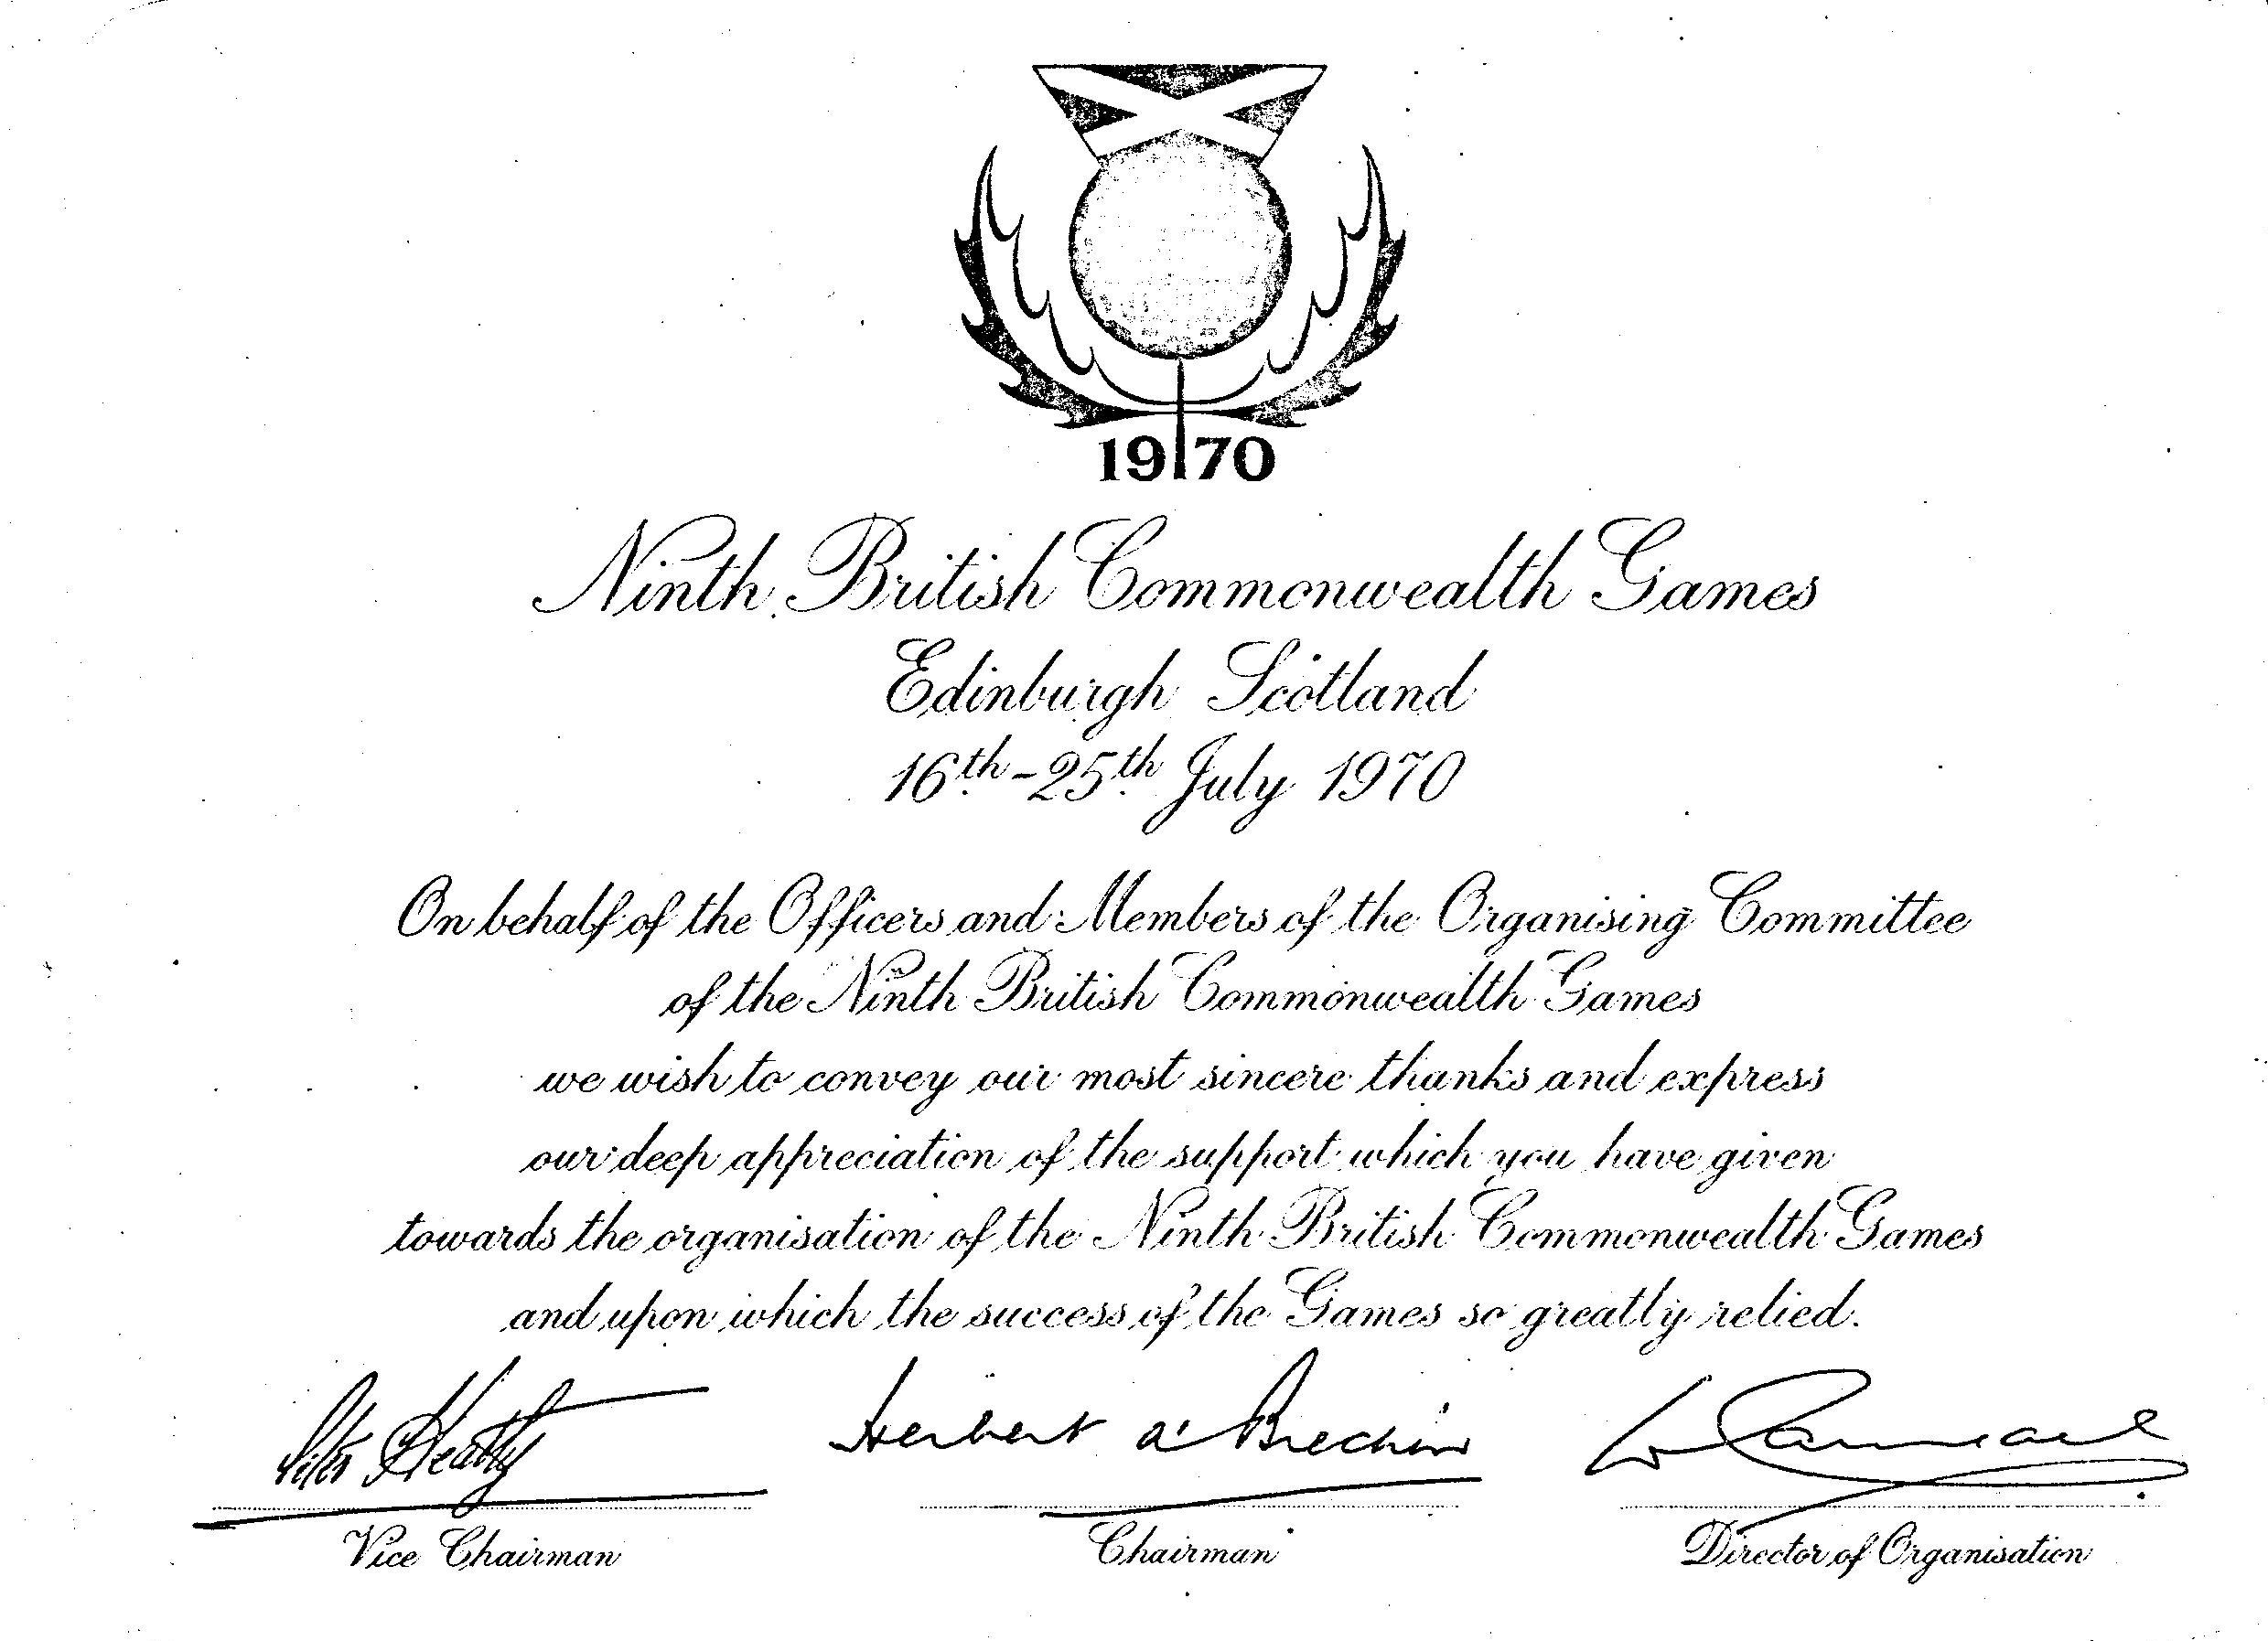 1970
Ninth British Commonwealth Games
Edinburgh Scotland
16th - 25th July 1970
On behalf of the Officers and Members of the Organising Committee
of the Ninth British Commonwealth Games
we wish to convey our most sincere thanks and express
our deep appreciation of the support which you have given
towards the organisation of the Ninth British Commonwealth Games
and upon which the success of the Games so greatly relied.
Peter Heatly Herbert A Brechin
Vice Chairman Chairman Director of Organisation